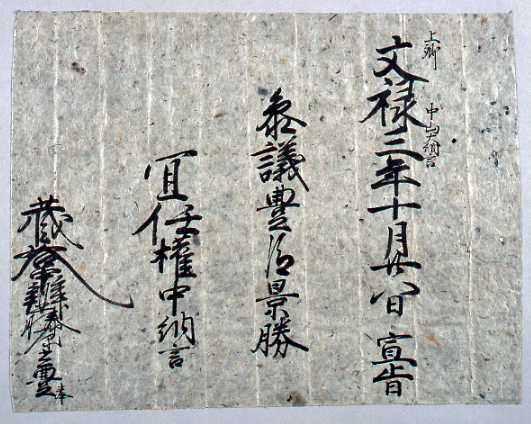 上卿 中山大納言
文禄三年十月廿八日 宣旨
参議豊臣景勝
宜任権中納言
蔵人藤原光豊奉